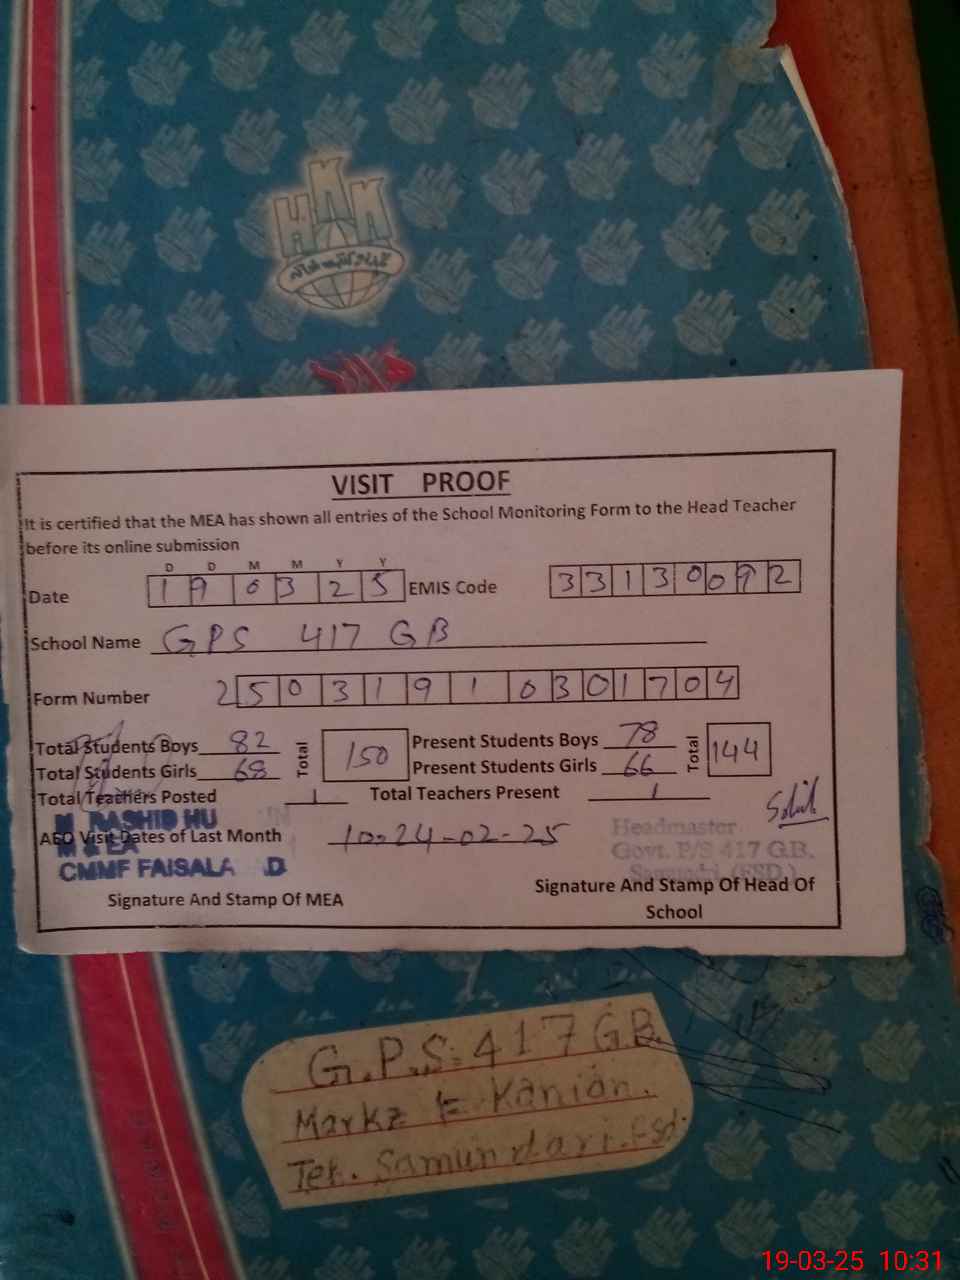 HAK
VISIT PROOF
It is certified that the MEA has shown all entries of the School Monitoring Form to the Head Teacher
before its online submission
D D M M Y Y
Date 19 03 25 EMIS Code 33130092
School Name GPS 417 GB
Form Number 25031910301704
Total Students Boys 82 Total 150 Present Students Boys 78 Total 144
Total Students Girls 68 Present Students Girls 66
Total Teachers Posted 1 Total Teachers Present 1
M RASHID HU
AEO Visit Dates of Last Month 10-24-02-25 Headmaster
M & EA Govt. P/S 417 G.B.
CMMF FAISALA D Samundri (FSD.)
Signature And Stamp Of MEA Signature And Stamp Of Head Of
School
G.P.S: 417 G.B.
Markz Kanian.
Teh. Samundari. Fsd.
19-03-25 10:31